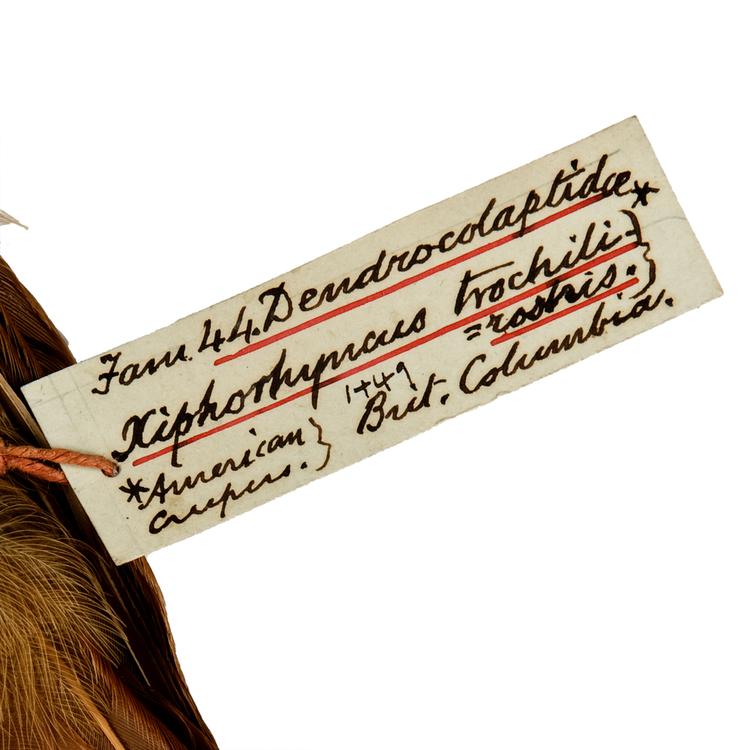 Fam. 44. Dendrocolaptidæ*
Xiphorhyncus trochili-}
=rostris.}
1449
Brit. Columbia.
*American}
creepers.}